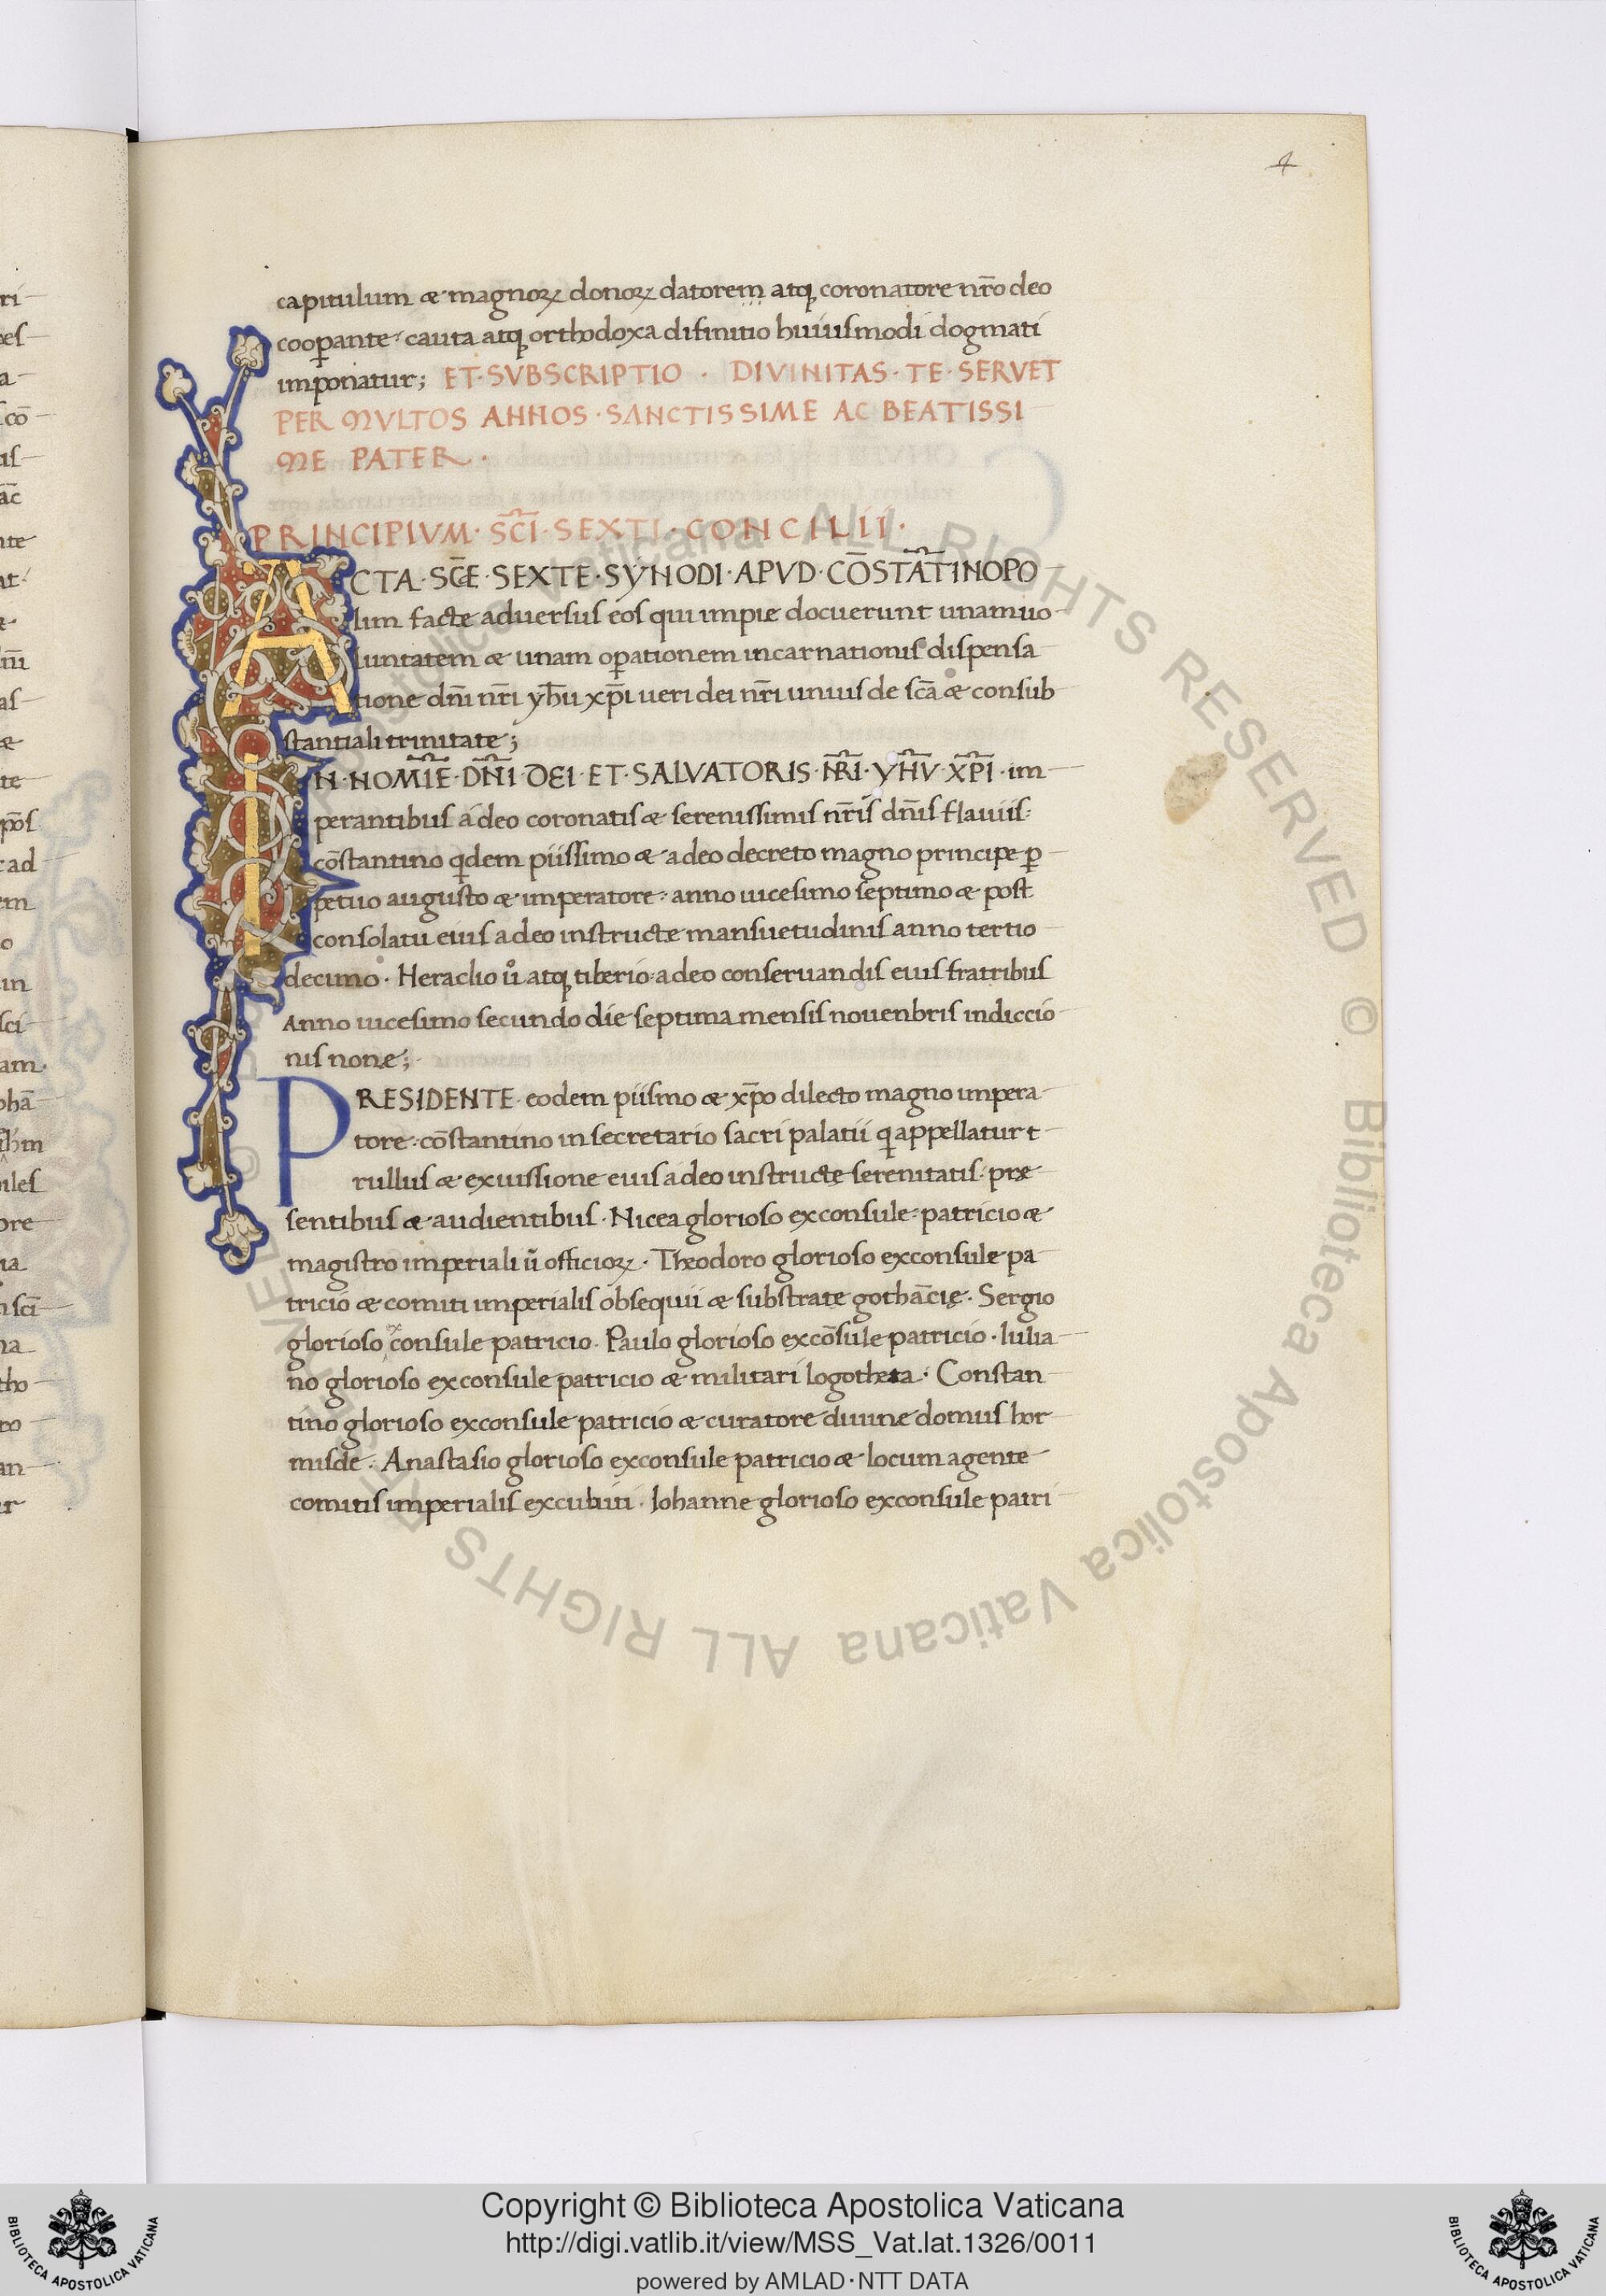 4
capitulum & magnoꝝ donoꝝ datorem atqꝫ coronatore nr̄o deo
cooꝑante· cauta atqꝫ orthodoxa difinitio huiusmodi dogmati
imponatur; ET·SVBSCRIPTIO · DIVINITAS·TE·SERVET
PER MVLTOS ANNOS·SANCTISSIME AC BEATISSI
ME PATER·
PRINCIPIVM·SC̄I·SEXTI·CONCILII·
ACTA·SC̄E·SEXTE·SYNODI·APVD·CŌSTĀTINOPO
lim facte adversus eos qui impie docuerunt unam uo
luntatem & unam oꝑationem incarnationis dispensa
tione dn̄i nr̄i yh̄u xp̄i ueri dei nr̄i unius de sc̄a & consub
stantiali trinitate;
IN·NOMIĒ·DN̄I·DEI·ET·SALVATORIS·NR̄I·YH̄V·XP̄I·im
perantibus á deo coronatis & serenissimis nr̄is dn̄is flauiis·
cōstantino qͥdem piissimo & a deo decreto magno principe ꝑ
petuo augusto & imperatore· anno uicesimo septimo & post
consolatu eius a deo instructe mansuetudinis anno tertio
decimo· Heraclio ů atqꝫ tiberio· a deo conseruandis eius fratribus
Anno uicesimo secundo die septima mensis nouenbris indiccio
nis none;
PRESIDENTE eodem piismo & xp̄o dilecto magno impera
tore· cōstantino in secretario sacri palatii qͥ appellatur t
rullus & exiussione eius a deo instructe serenitatis· præ
sentibus & audientibus· Nicea glorioso exconsule· patricio &
magistro imperialiū officioꝝ· Theodoro glorioso exconsule pa
tricio & comiti imperialis obsequii & substrate gothācię· Sergio
glorioso exconsule patricio· Paulo glorioso excōsule patricio· Iulia
no glorioso exconsule patricio & militari logotheta· Constan
tino glorioso exconsule patricio & curatore diuine domus hor
misde· Anastasio glorioso exconsule patricio & locum agente
comitis imperialis excubiti· Iohanne glorioso exconsule patri
Biblioteca Apostolica Vaticana ALL RIGHTS RESERVED ©
Copyright © Biblioteca Apostolica Vaticana
http://digi.vatlib.it/view/MSS_Vat.lat.1326/0011
powered by AMLAD·NTT DATA
BIBLIOTECA APOSTOLICA VATICANA
BIBLIOTECA APOSTOLICA VATICANA